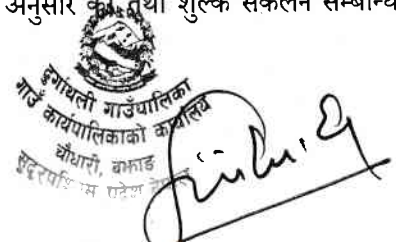 अनुसार कर तथा शुल्क संकलन सम्बन्धि
दुर्गाथली गाउँपालिका
गाउँ कार्यपालिकाको कार्यालय
चौधारी, बझाङ
सुदूरपश्चिम प्रदेश नेपाल